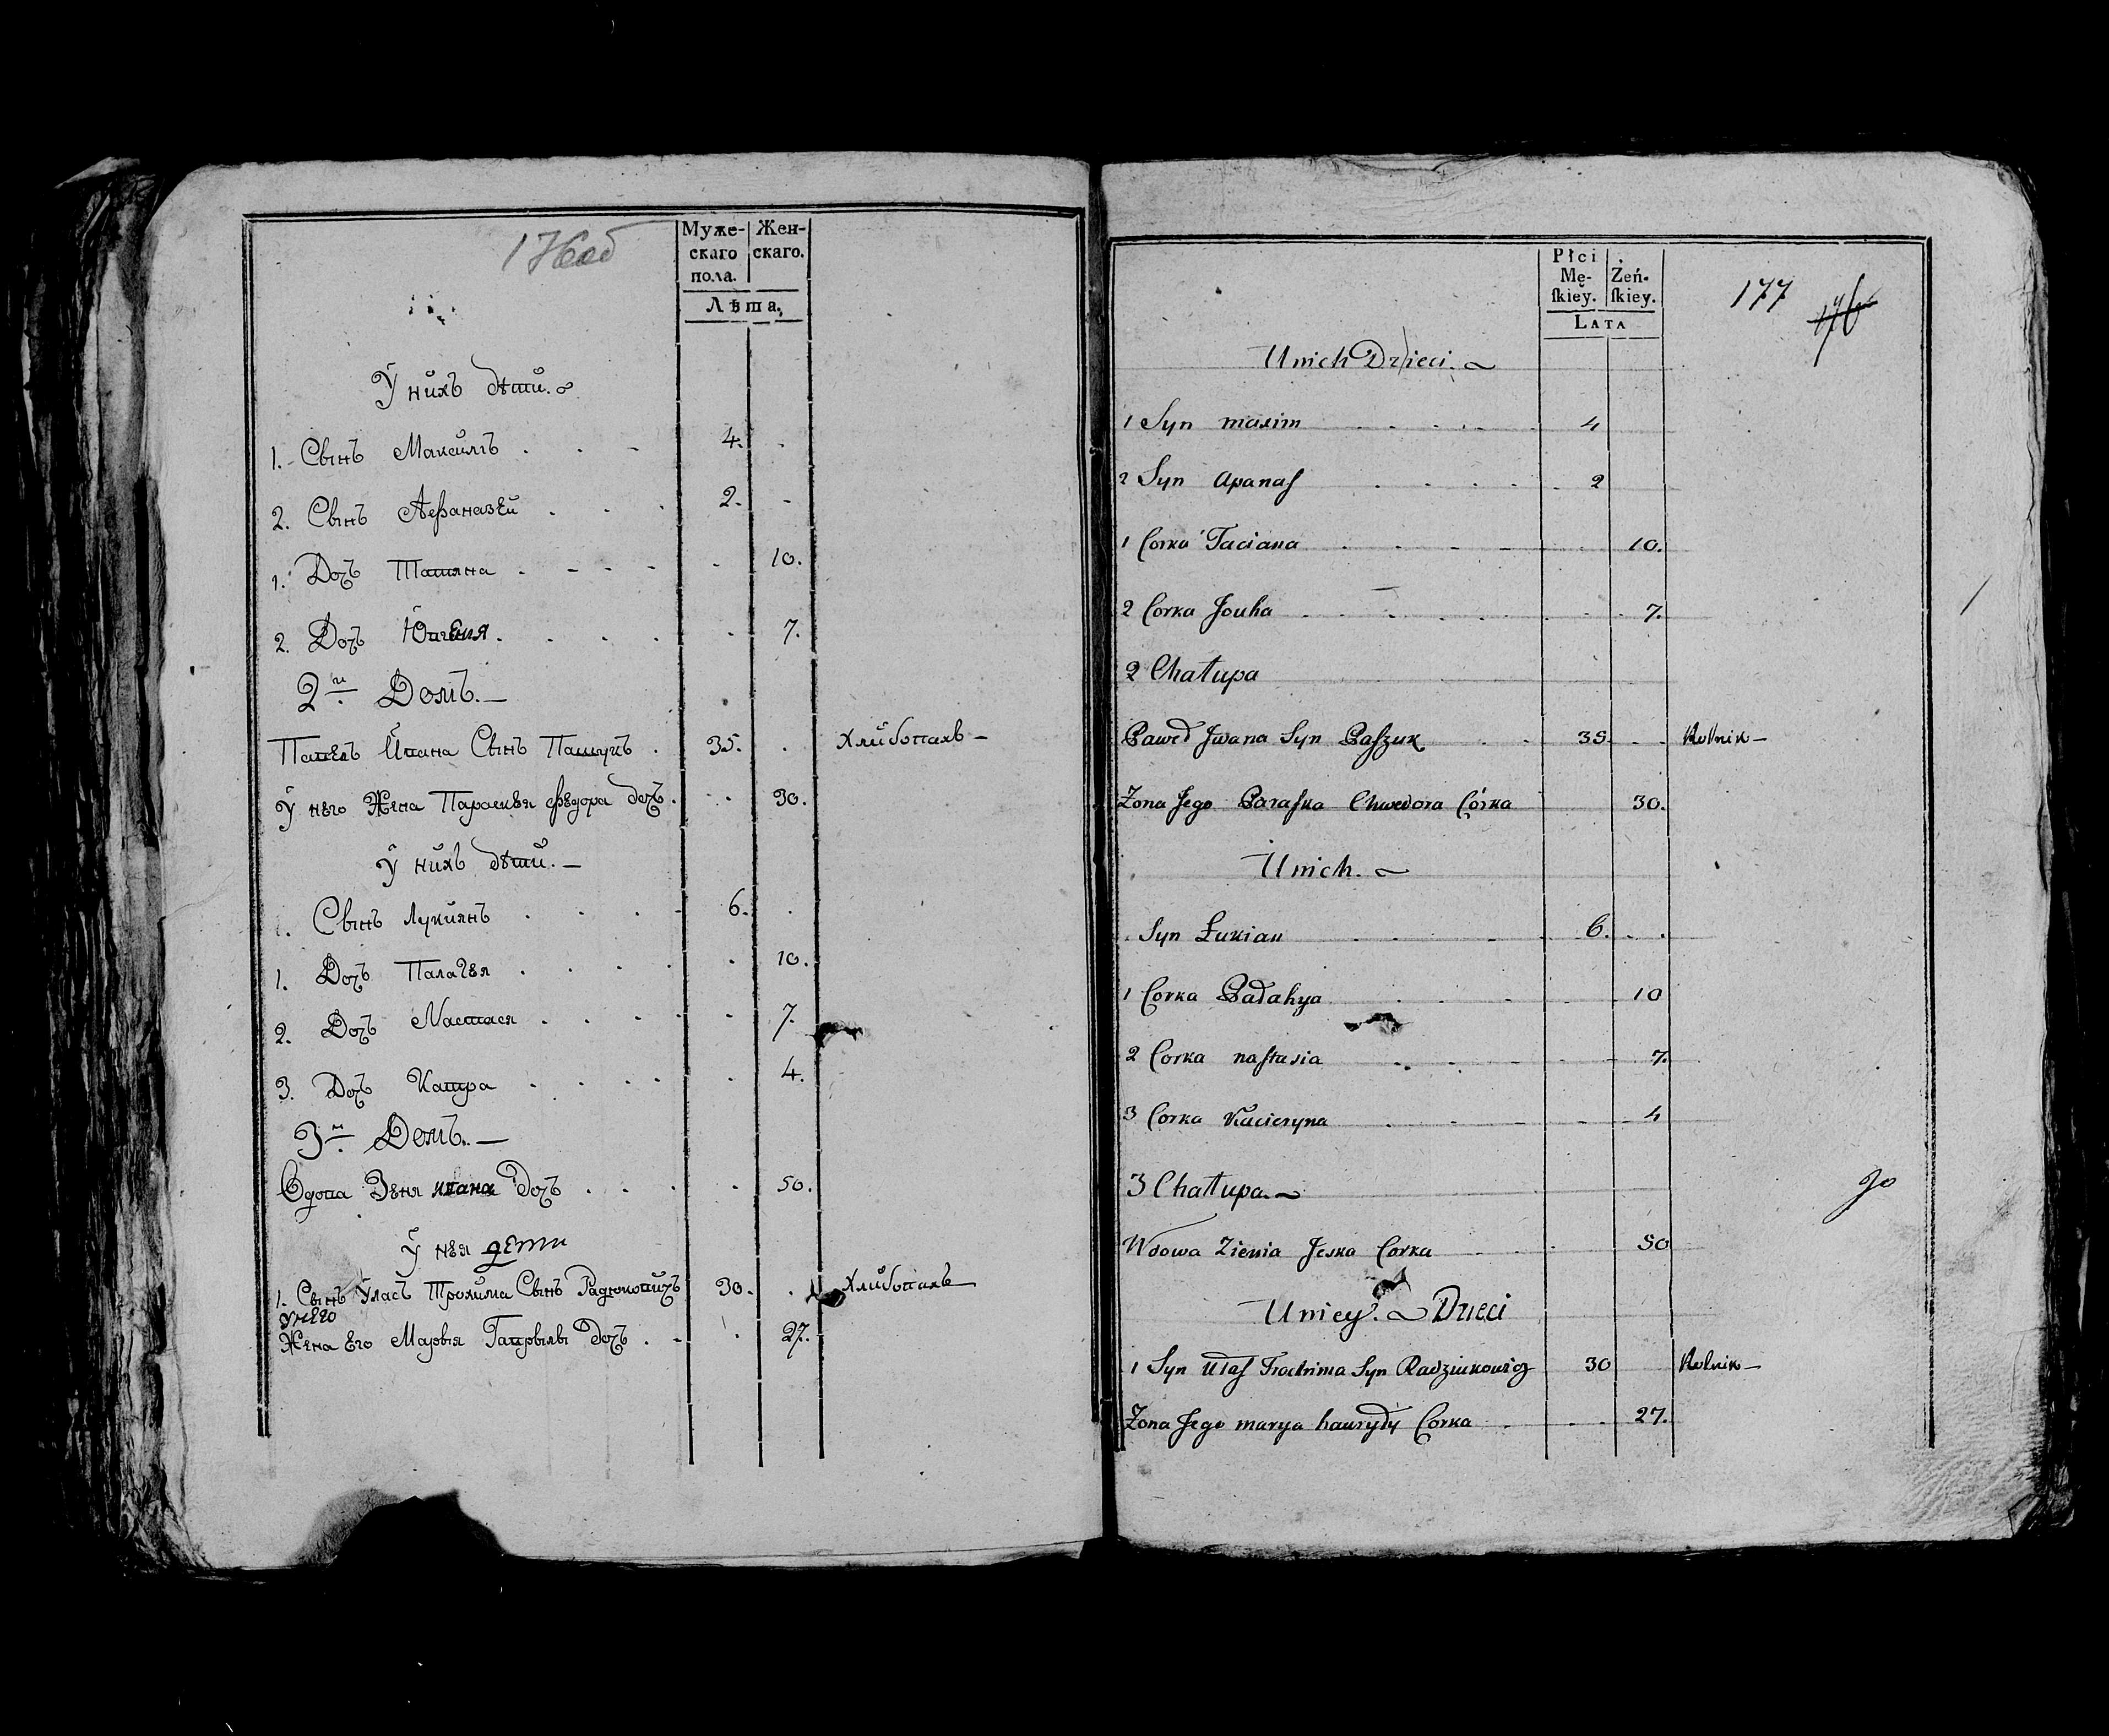 176об
Муже-
скаго
пола.
Жен-
скаго.
Лѣта.
У нихъ дѣти.
1. Сынъ Максимъ . . - 4. .
2. Сынъ Афаназей . . . 2. -
1. Доч Татяна . - - - . 10.
2. Доч . . . . 7.
2й Домъ. —
Павелъ Ивана Сынъ Пашукъ . 35. . Хлибопахъ —
У него Жена Параскевя Федора доч. . . 30.
У нихъ дѣти. —
1. Сынъ Лукиянъ . . . - 6. .
1. Доч Палагея . . . . . 10.
2. Доч Настася . . . - - 7.
3. Доч Катра . . . . . 4.
3й Домъ. —
Вдова Зеня ивана Доч . . . . 50.
У нея дети
1. Сынъ Уласъ Трохима Сынъ Радзюковичъ 30. . Хлибопахъ
у него
Жена Его Маря Гаврылы Доч . - . 27.
Płci
Mę-
ſkiey.
Żeń-
ſkiey.
LATA
177
176
U nich Dzieci.
1 Syn maxim . . . . . 4
2 Syn Apanaſ . . . . . 2
1 Corka Taciana . . . - . 10.
2 Corka Jouha . . . . . 7.
2 Chałupa
Paweł Jwana Syn Paſzuk . . 35 . . Rolnik —
Zona Jego Paraſka Chwedora Córka 30.
U nich.
. Syn Łukian . . . . 6. . .
1 Corka Pałahya . . . . 10
2 Corka naſtasia . . . . 7.
3 Corka Kacieryna . . - - 4
3 Chałupa. 
Wdowa Zienia Jeska Corka . . 50
U niey. Dzieci
1 Syn Ułaſ Trochima Syn Radziukowicz 30 Rolnik —
Zona Jego marya hawryły Corka . . . 27.